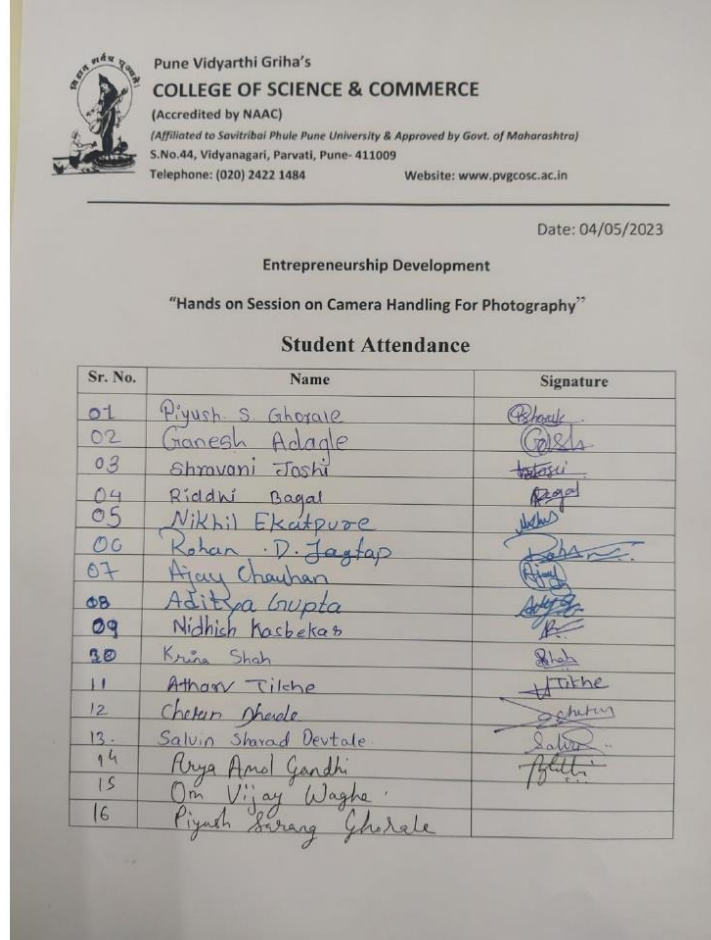 Pune Vidyarthi Griha's
COLLEGE OF SCIENCE & COMMERCE
(Accredited by NAAC)
(Affiliated to Savitribai Phule Pune University & Approved by Govt. of Maharashtra)
S.No.44, Vidyanagari, Parvati, Pune- 411009
Telephone: (020) 2422 1484 Website: www.pvgcosc.ac.in
Date: 04/05/2023
Entrepreneurship Development
“Hands on Session on Camera Handling For Photography”
Student Attendance
Sr. No. Name Signature
01 Piyush S. Ghorale
02 Ganesh Adagle
03 Shravani Joshi
04 Riddhi Bagal Bagal
05 Nikhil Ekatpure
06 Rohan .D. Jagtap
07 Ajay Chauhan Ajay
08 Aditya Gupta
09 Nidhish Kasbekar
10 Krina Shah Shah
11 Atharv Tikhe Tikhe
12 Chetan
13. Salvin Sharad Devtale
14 Arya Amol Gandhi
15 Om Vijay Waghe.
16 Piyush Sarang Ghorale